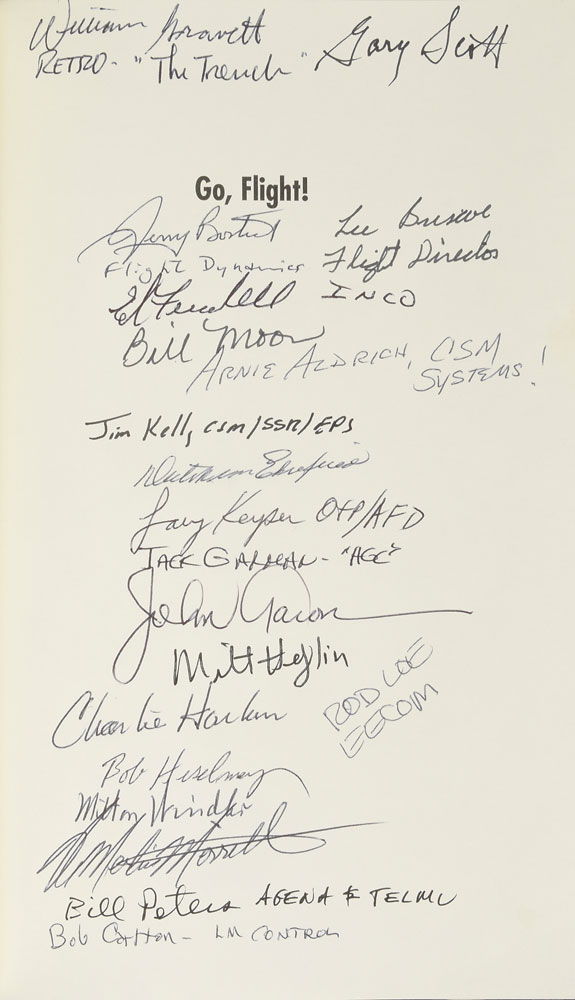 William Gravett Gary Scott
RETRO - "The Trench"
Go, Flight!
Jerry Bostick Lee Briscoe
Flight Dynamics Flight Director
Ed Fendell INCO
Bill Moon
ARNIE ALDRICH, CSM
SYSTEMS!
Jim Kelly CSM/SSR/EPS
Larry Keyser OIP/AFD
JACK GARMAN - "AGC"
John Aaron
Milt Heflin
Charlie Harlan
ROD LOE
EECOM
Bob Heselmeyer
Milton Windler
M Merlin Merritt
Bill Peters AGENA & TELMU
Bob Carlton - LM CONTROL